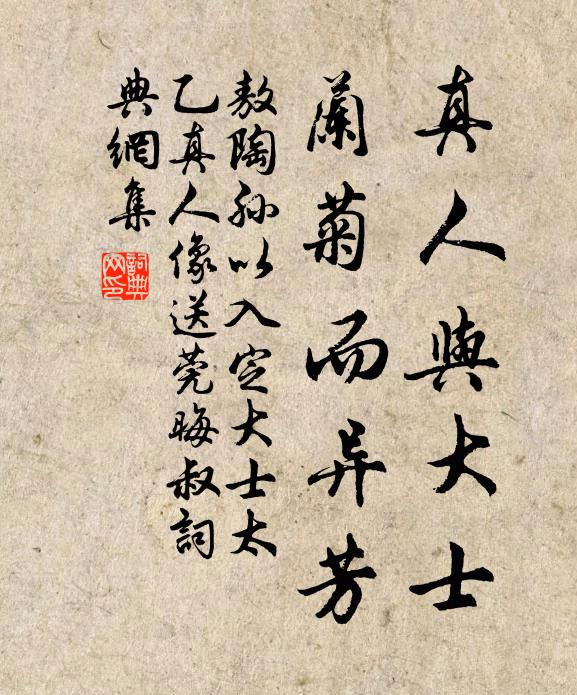 真人與大士
蘭菊而异芳
敖陶孙以入定大士太
乙真人像送莞晦叔詞
典網集
詞典網印